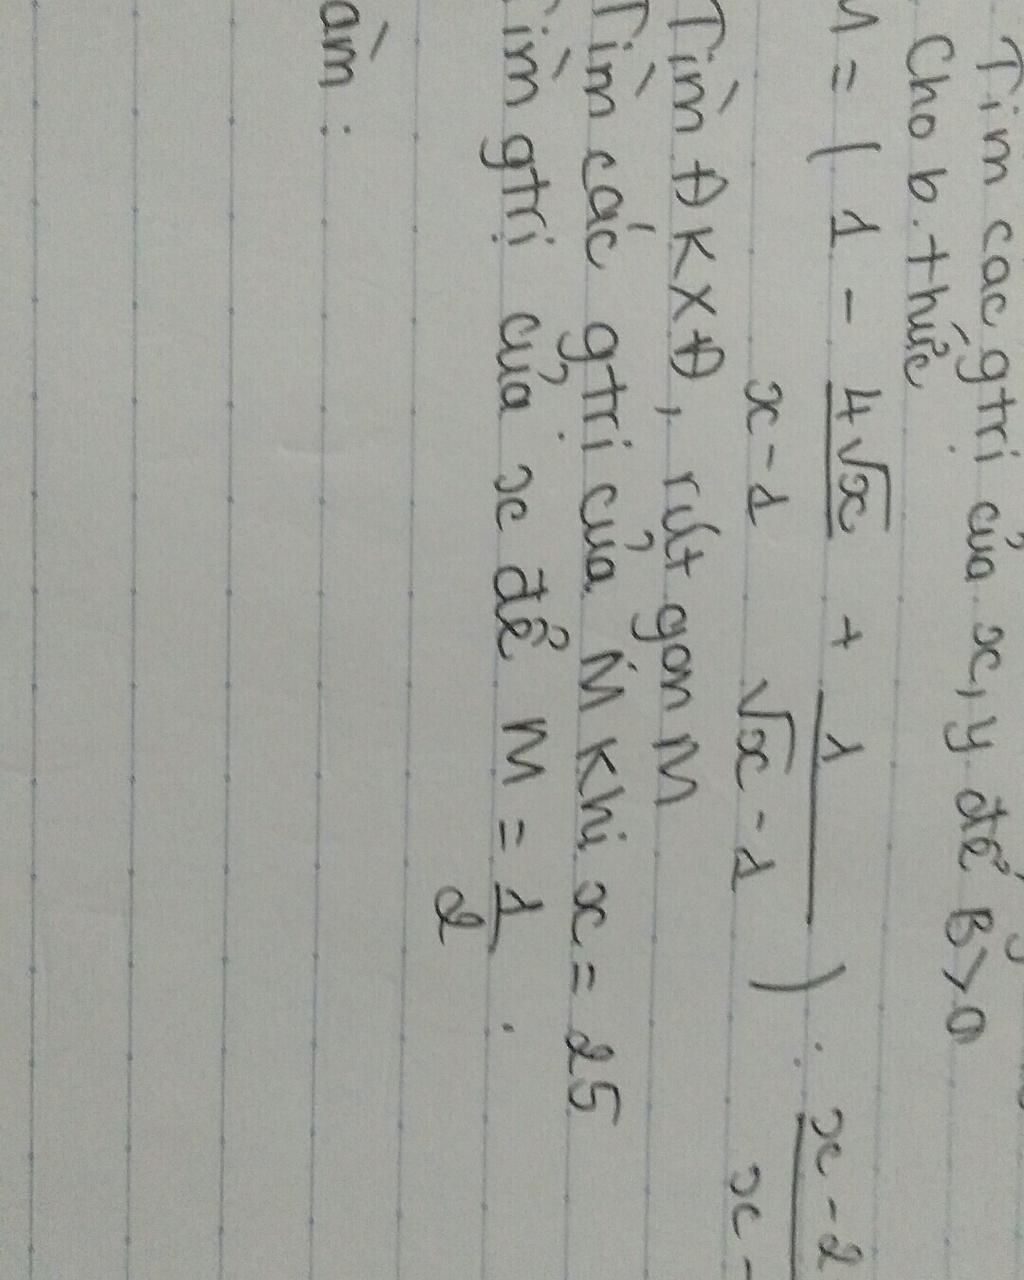 Tìm các gtrị của x, y để B > 0
Cho b. thức
M = ( 1 - 4√x/x-1 + 1/√x-1 ) : x-2/x-
Tìm ĐKXĐ, rút gọn M
Tìm các gtrị của M khi x = 25
Tìm gtrị của x để M = 1/2 .
àm :